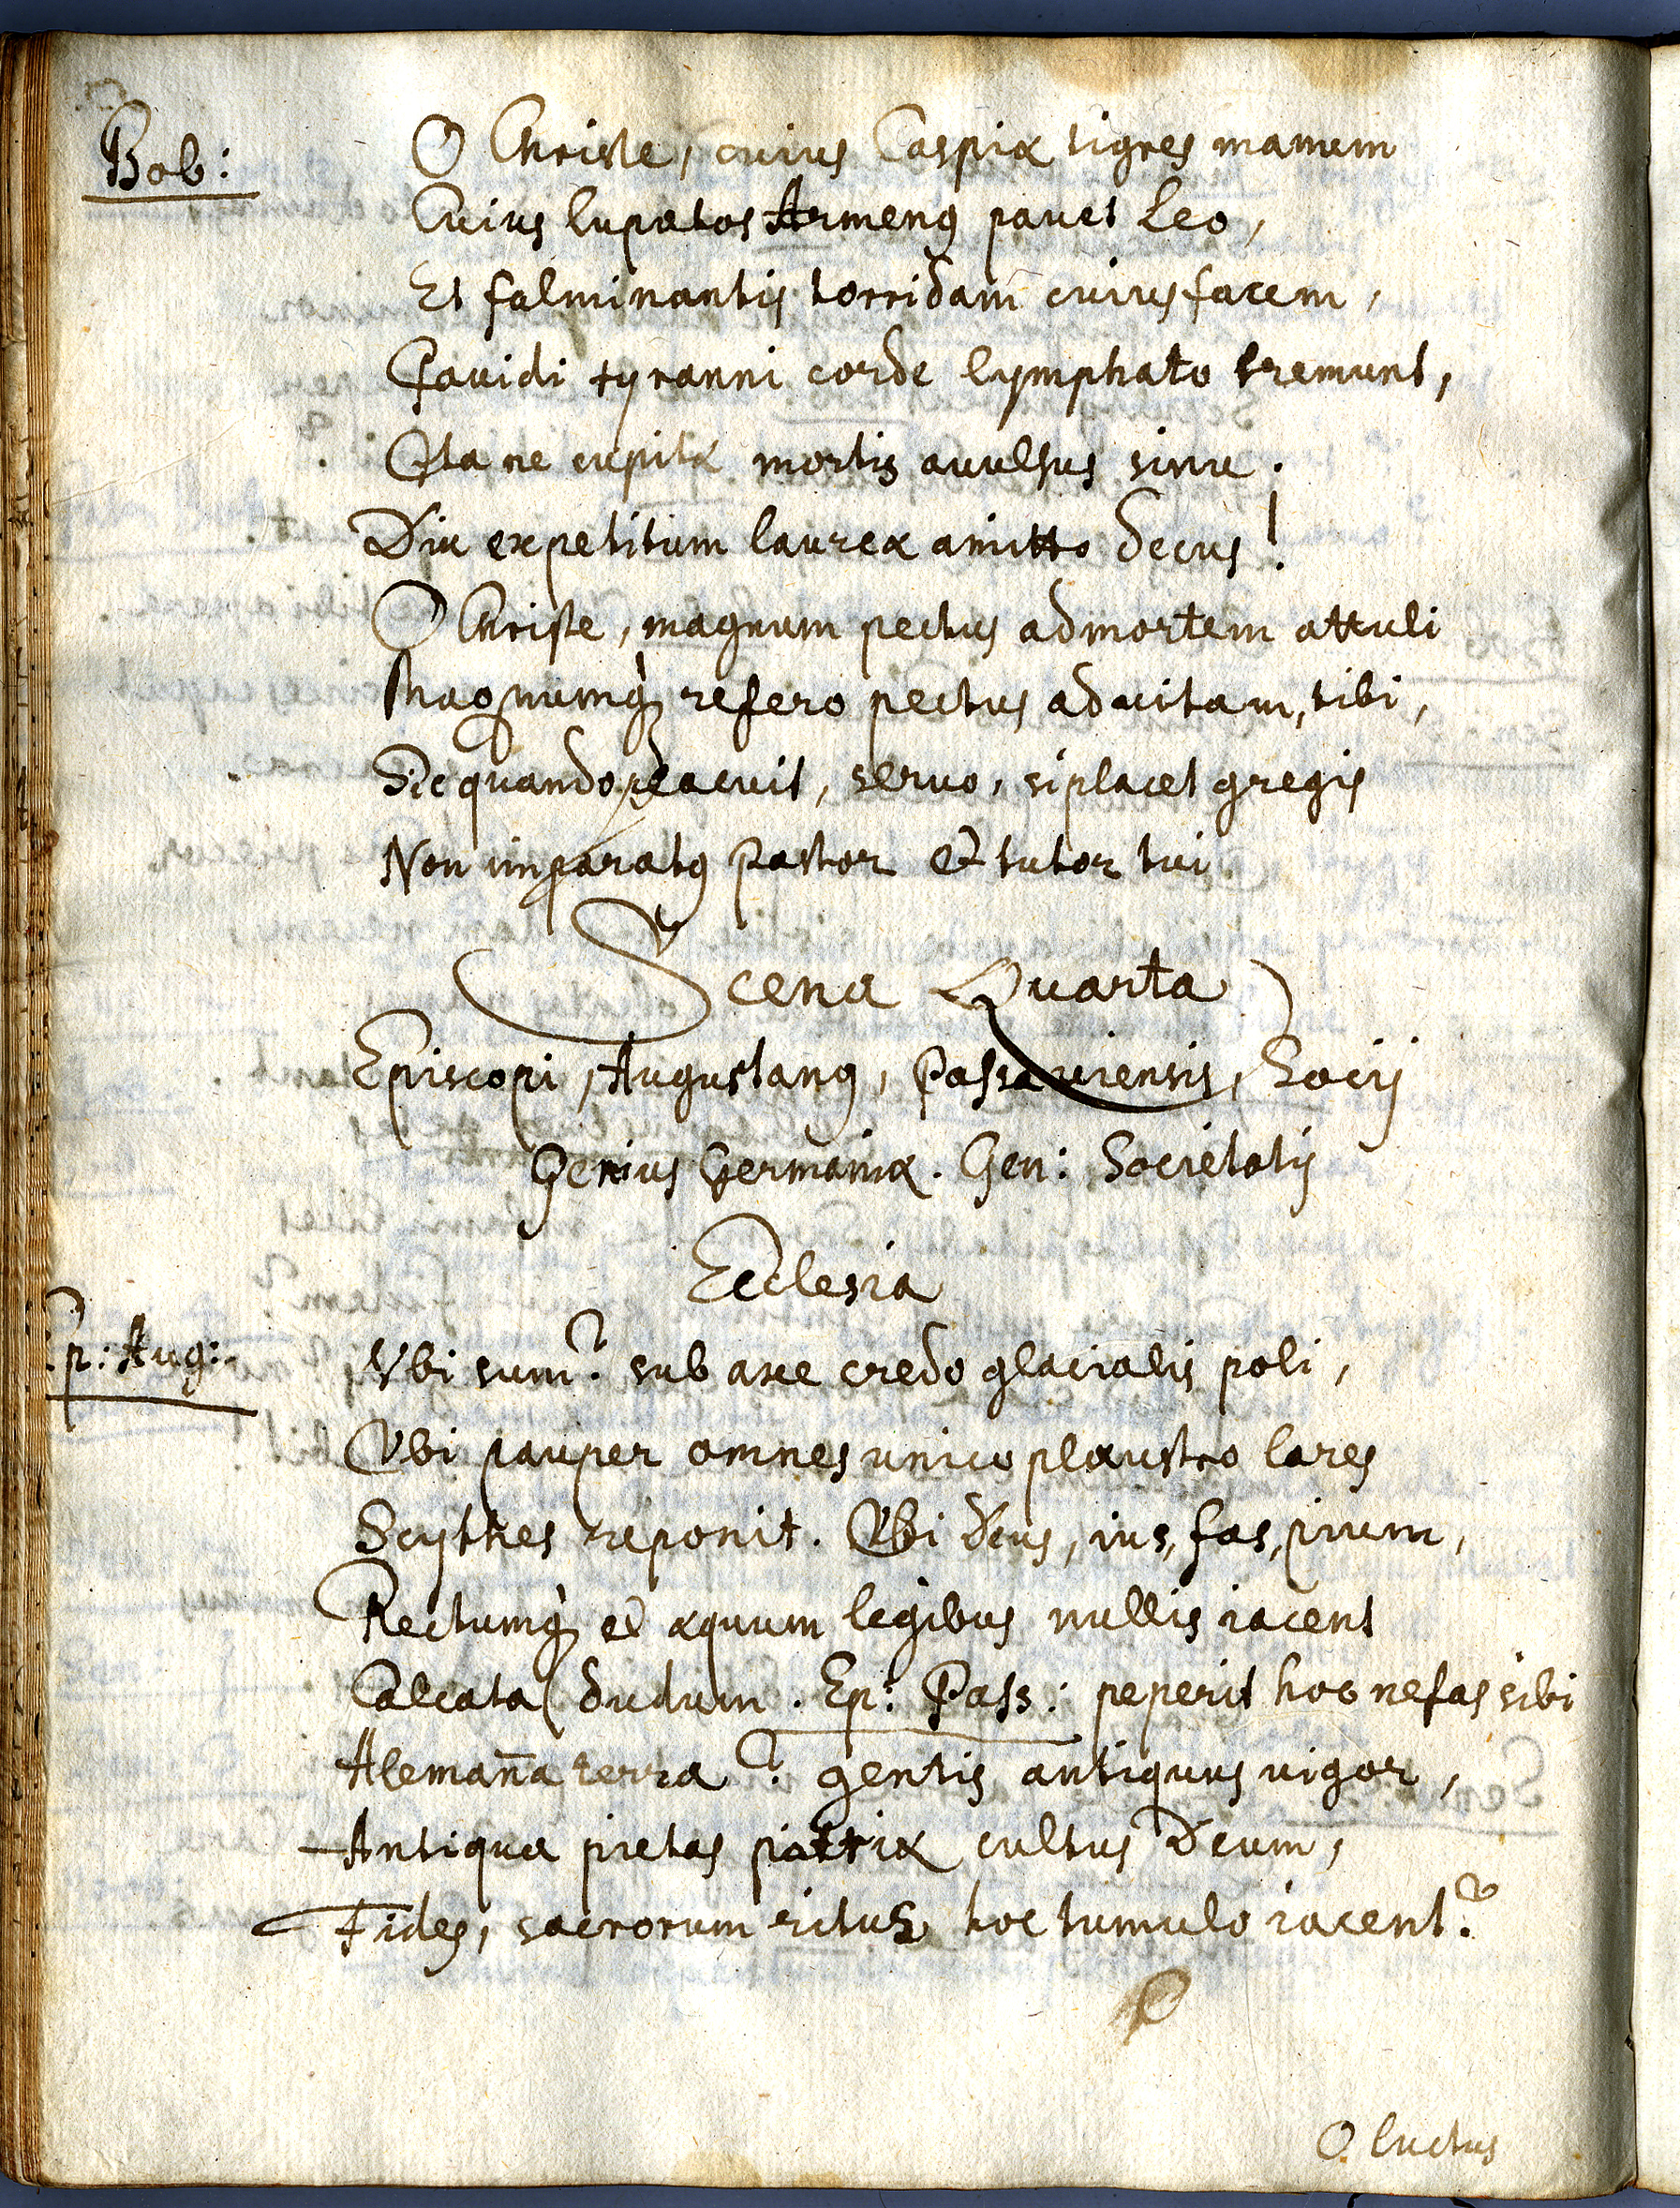 Bob: O Christe, cuius Caspiæ tigres manum
Cuius lupatos Armenꝰ pauet Leo,
Et fulminantis torridam cuius facem,
Pauidi tyranni corde lymphato tremunt,
Ita ne cupitæ mortis avulsus sinu.
Diu expetitum laureæ amitto decus!
O Christe, magnum pectus ad mortem attuli
Magnumq̀ refero pectus ad uitam, tibi,
Sic quando placuit, seruo, si placet gregis
Non imparatꝰ Pastor et tutor tui
Scena Quarta
Episcopi, Augustanꝰ, Passauiensis, Socij
Genius Germaniæ. Gen: Societatis
Ecclesia
Ep: Aug: Vbi sum? sub axe credo glacialis poli,
Vbi pauper omnes unico plaustro lares
Scythes reponit. Vbi Deus, ius, fas, pium,
Rectumq̀ et æquum legibus nullis iacent
Calcata dudum. Ep: Pass: peperit hoc nefas sibi
Alemaña terra? gentis antiquus uigor,
Antiqua pietas patriæ cultus Deum,
Fides, sacrorum ritus hoc tumulo iacent?
O luctus